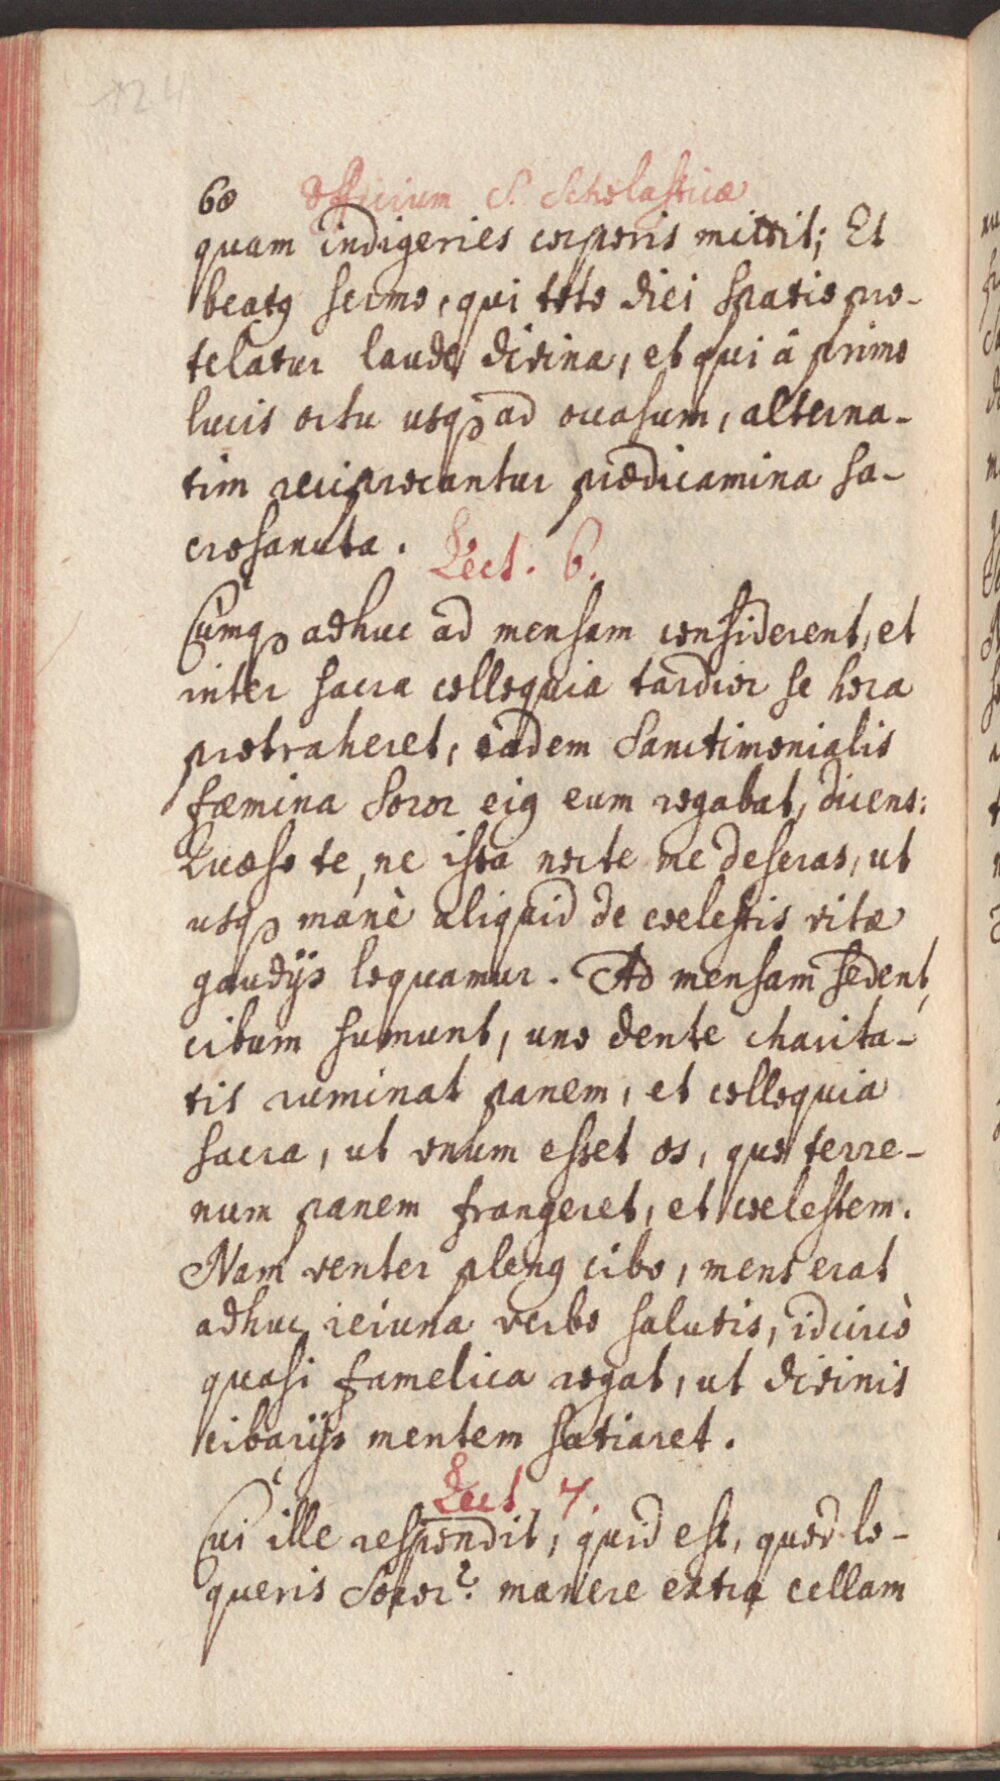 124
60 Officium S. Scholasticæ
quam indigeries corporis mittit; Et
beatꝰ sermo, qui toto diei spatio pro-
telatur laude divina, et qui à primo
lucis ortu usqꝫ ad occasum, alterna-
tim reciprocantur prædicamina sa-
crosancta.
Lect. 6.
Cumqꝫ adhuc ad mensam considerent, et
inter sacra colloquia tardior se hora
protraheret, eadem Sanctimonialis
fæmina Soror eiꝰ eum rogabat, dicens:
Quæso te, ne ista nocte me deseras, ut
usqꝫ manè aliquid de coelestis vitæ
gaudijs loquamur. Ad mensam sedent,
cibum sumunt, uno dente charita-
tis ruminat panem, et colloquia
sacra, ut unum esset os, quo terre-
num panem frangeret, et coelestem.
Nam venter plenꝰ cibo, mens erat
adhuc ieiuna verbo salutis, idcircò
quasi famelica rogat, ut divinis
cibarijs mentem satiaret.
Lect. 7.
Cui ille respondit, quid est, quod lo-
queris Soror? manere extra cellam